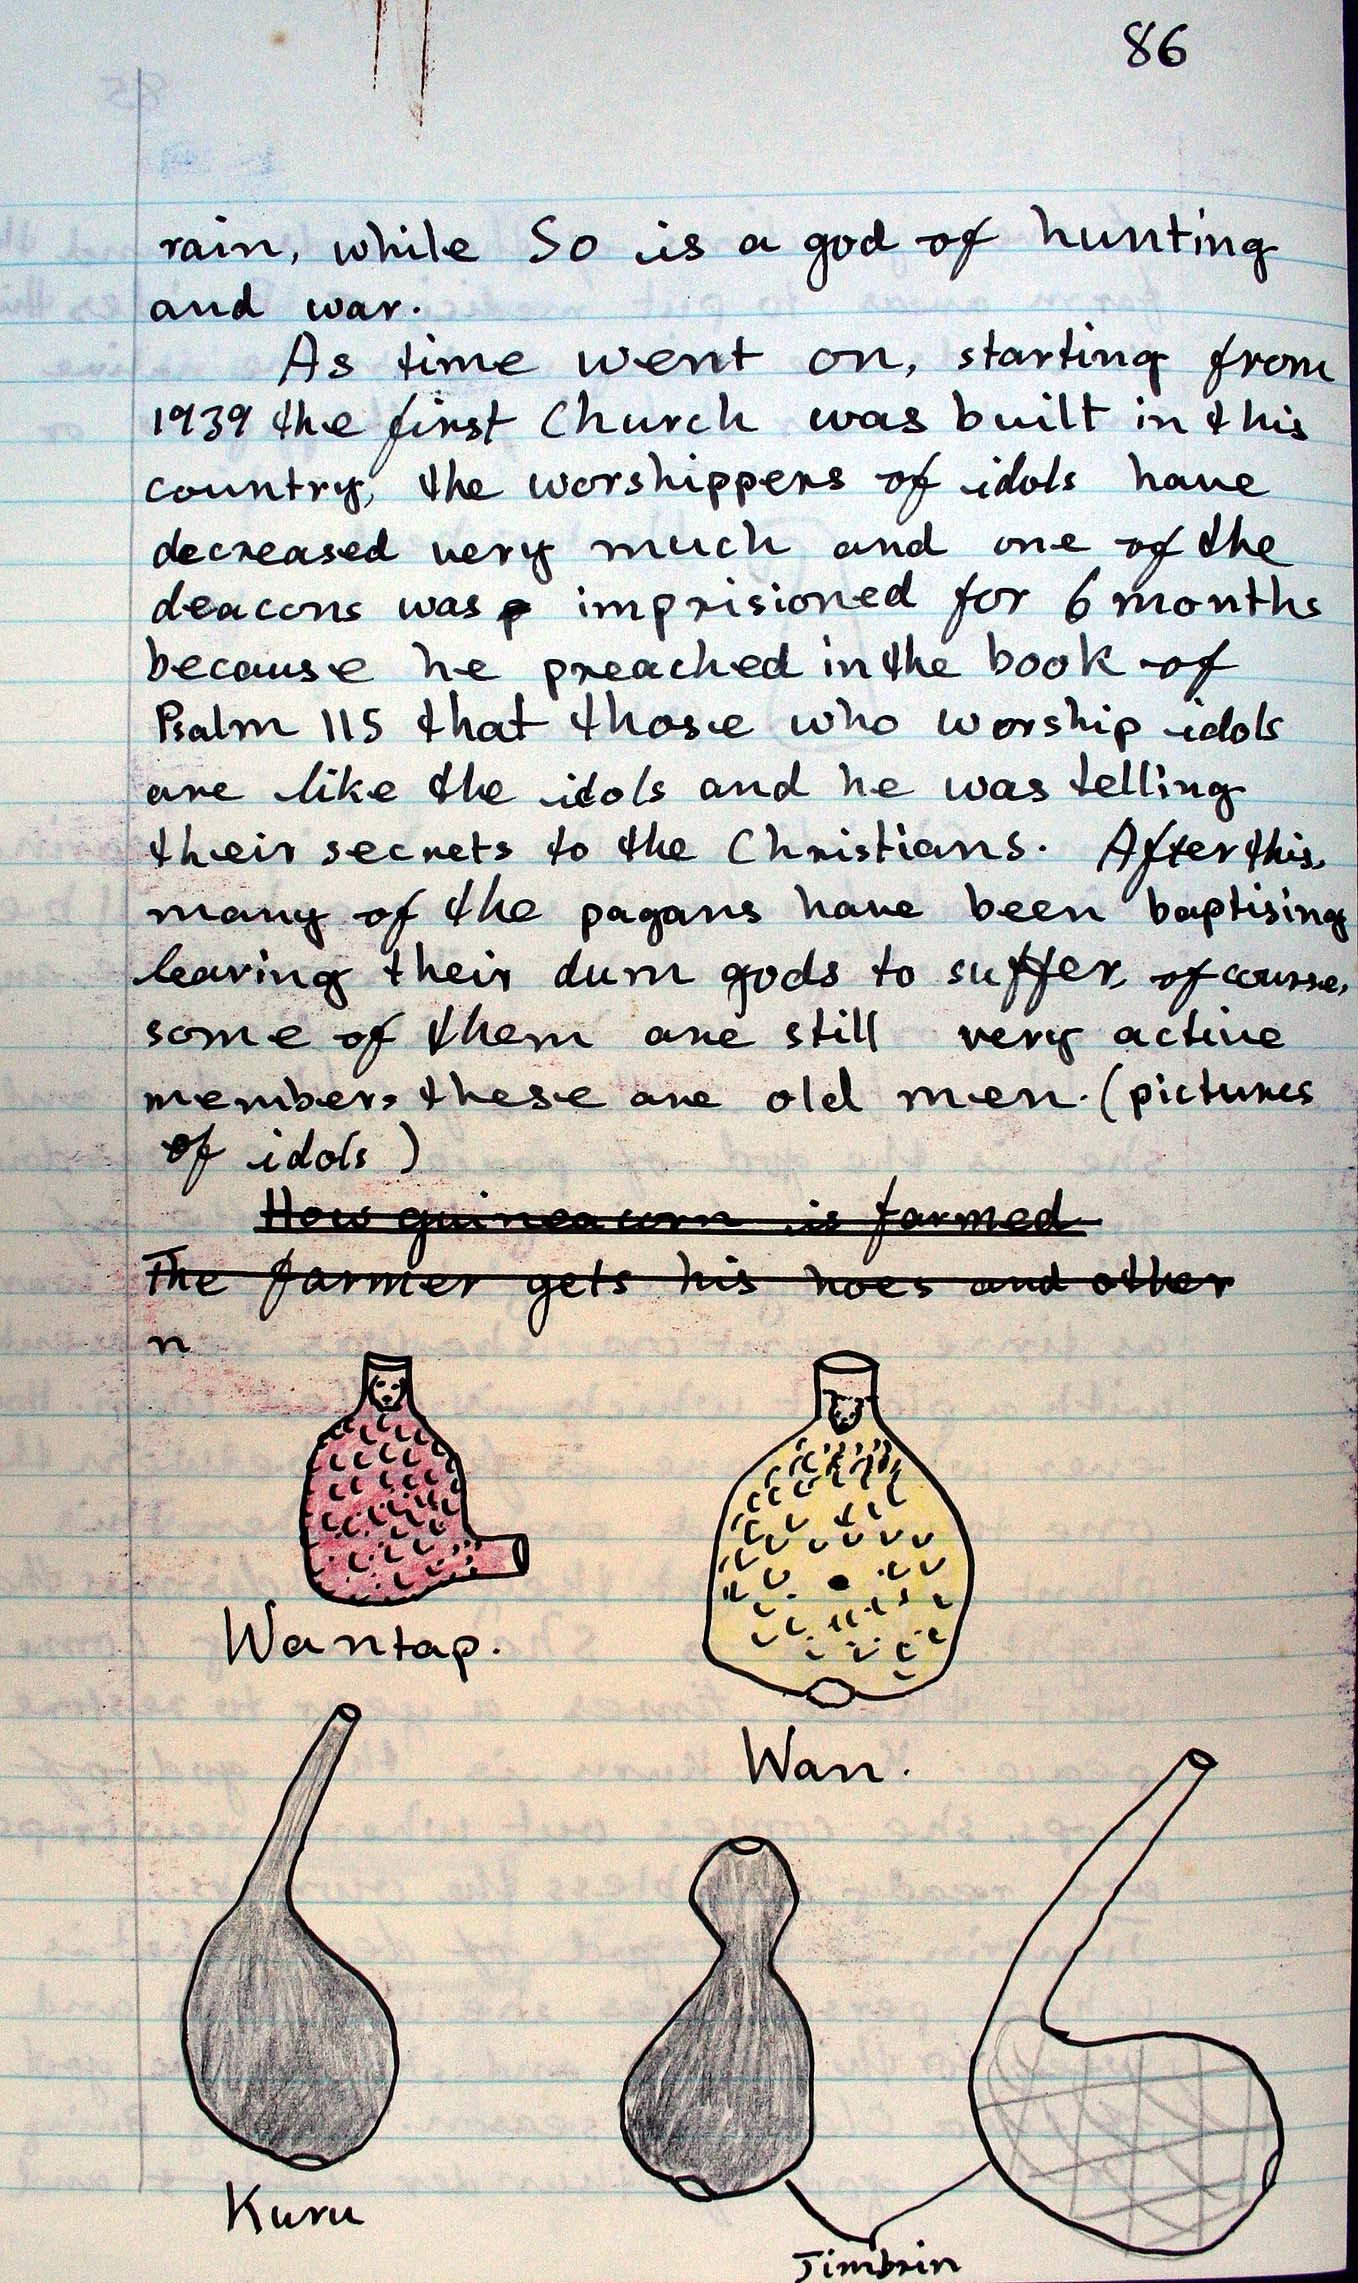 86
rain, while So is a god of hunting
and war.
As time went on, starting from
1939 the first Church was built in this
country, the worshippers of idols have
decreased very much and one of the
deacons was imprisioned for 6 months
because he preached in the book of
Psalm 115 that those who worship idols
are like the idols and he was telling
their secrets to the Christians. After this,
many of the pagans have been baptising
leaving their dum gods to suffer, of course,
some of them are still very active
members these are old men. (pictures
of idols)
How guinea corn is farmed
The farmer gets his hoes and other
n
Wantap.
Wan.
Kuru
Jimbrin